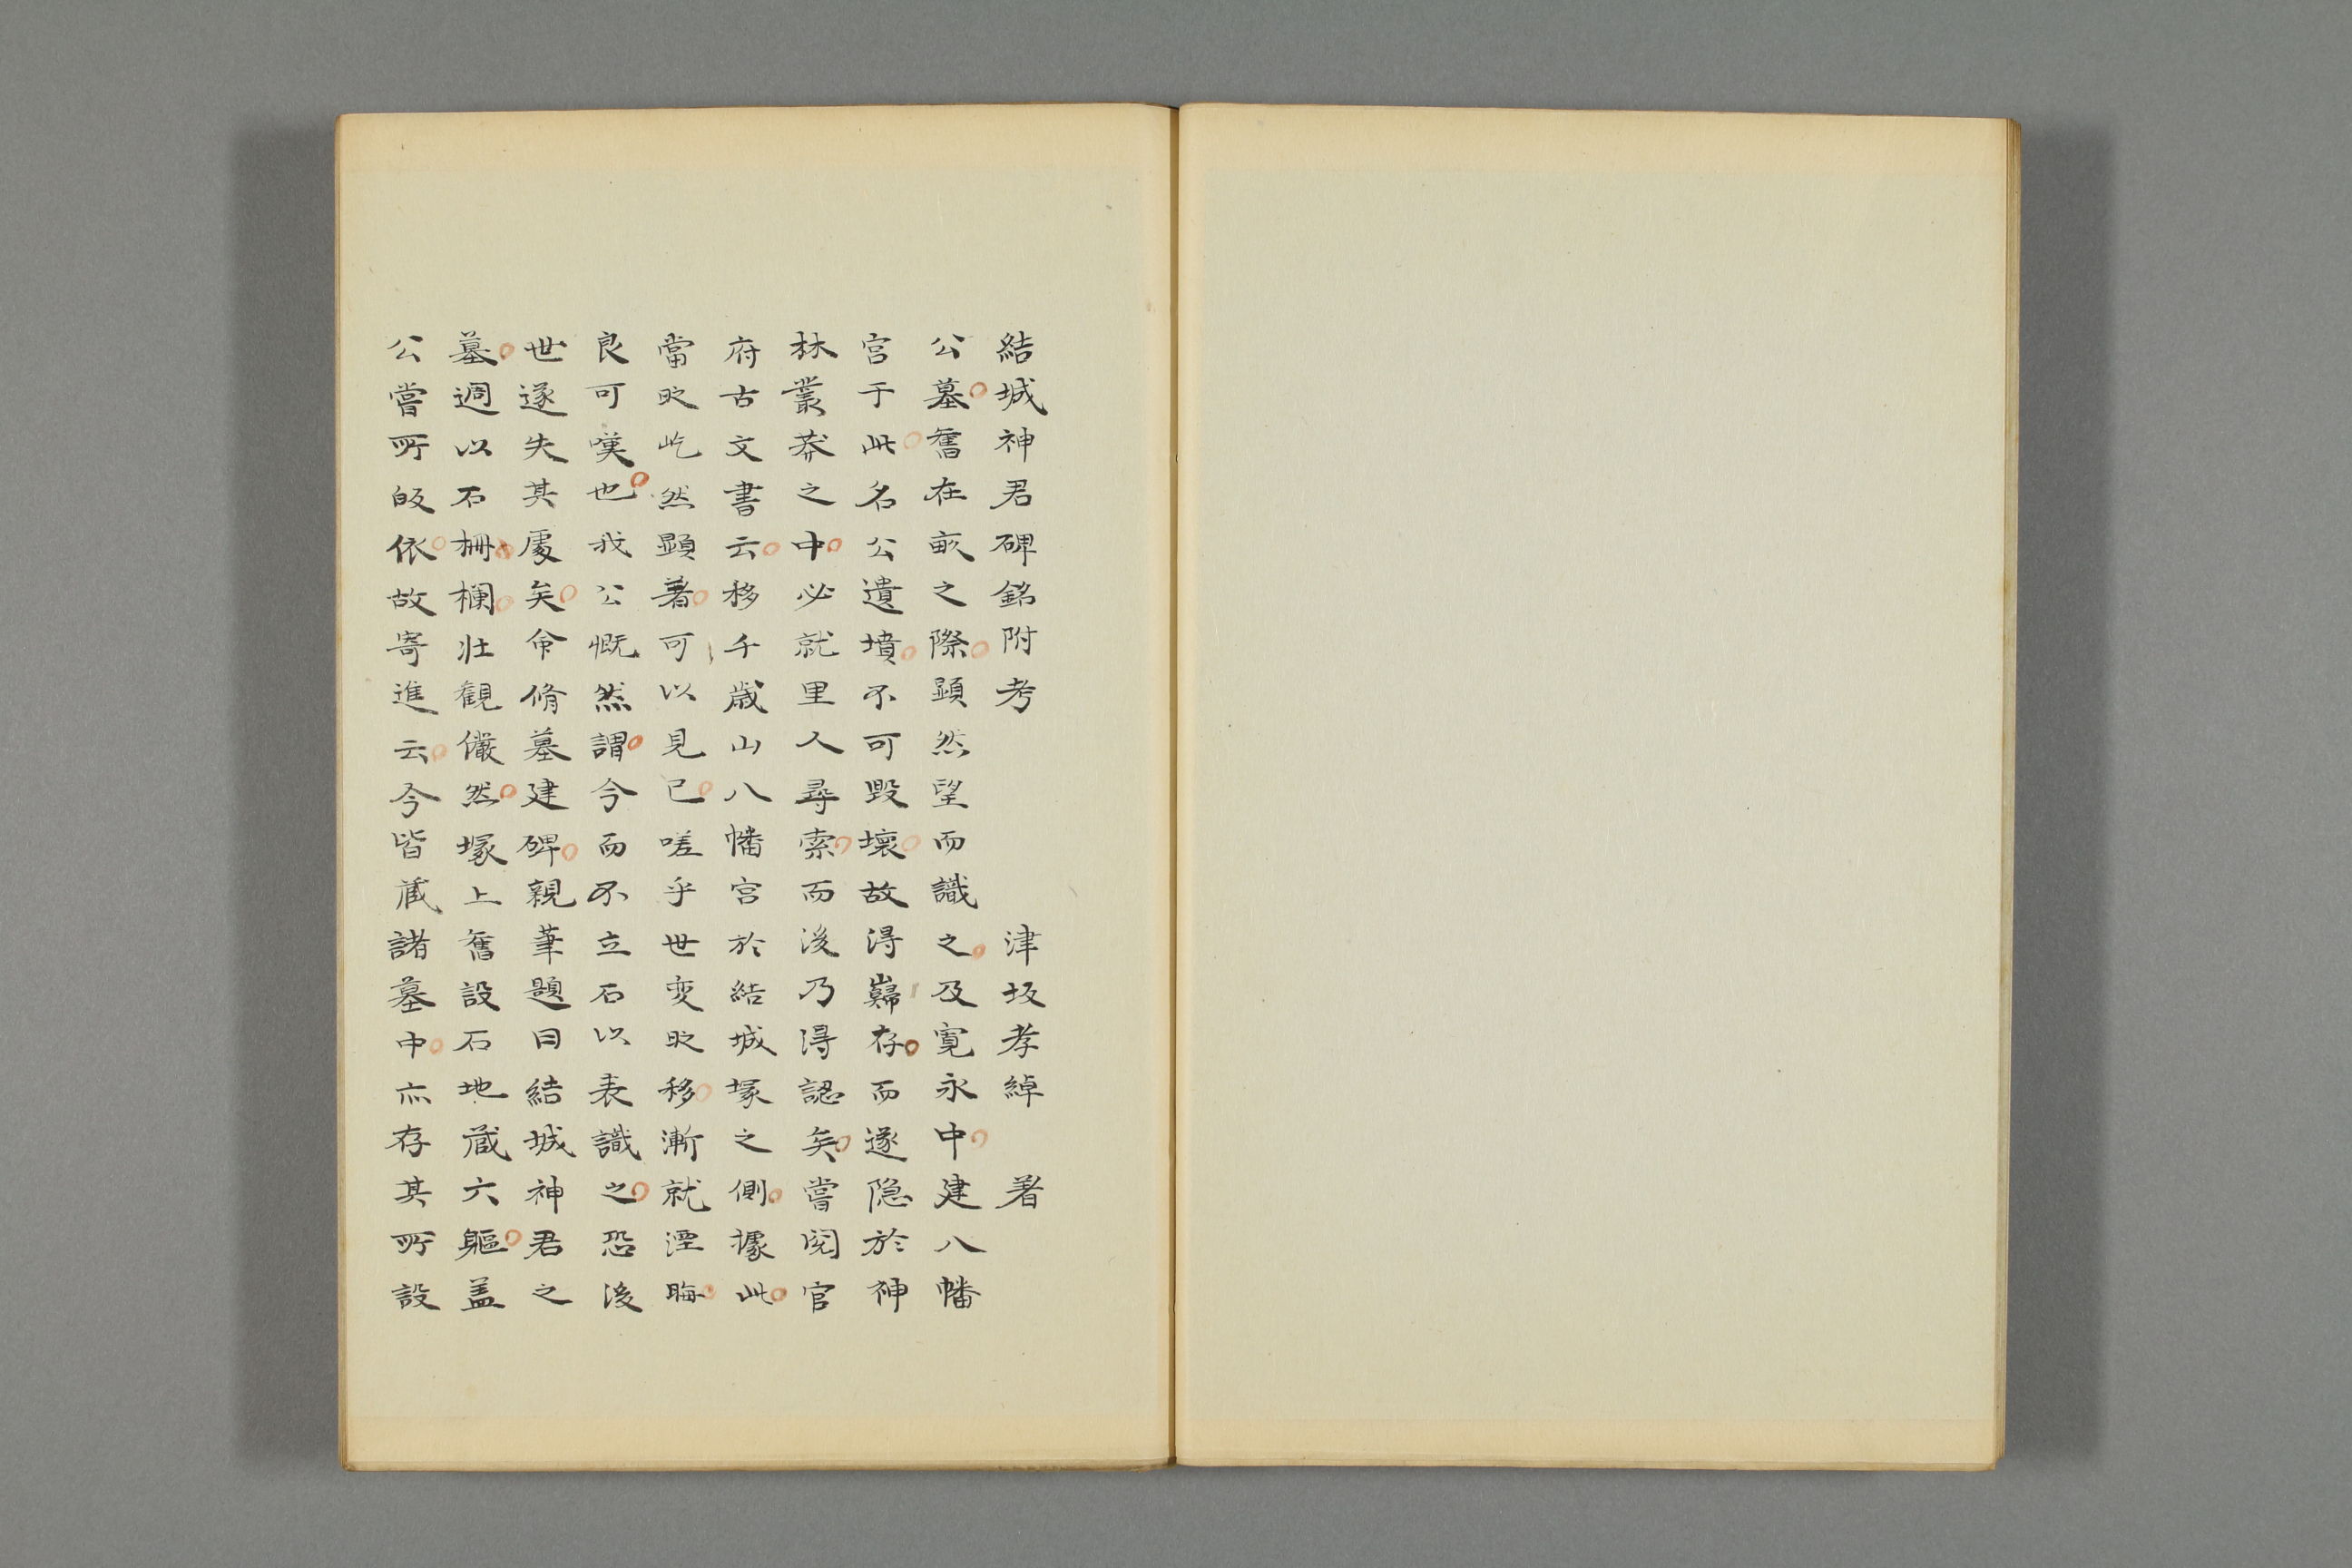 結城神君碑銘附考　津坂孝綽　著
公墓。舊在畝之際。顕然望而識之。及寛永中。建八幡
宮于此。名公遺墳。不可毀壞。故得巋存。而遂隠於神
林叢莽之中。必就里人尋索。而後乃得認矣。嘗閲官
府古文書云。移千歳山八幡宮於結城塚之側。據此。
當时屹然顕著。可以見已。嗟乎世变时移。漸就湮晦。
良可嘆也。我公慨然謂。今而不立石以表識之。恐後
世遂失其處矣。命脩墓建碑。親筆題曰結城神君之
墓。週以石柵。欄。壮観儼然。塚上舊設石地蔵六軀。盖
公嘗所皈依。故寄進云。今皆蔵諸墓中。亦存其所設